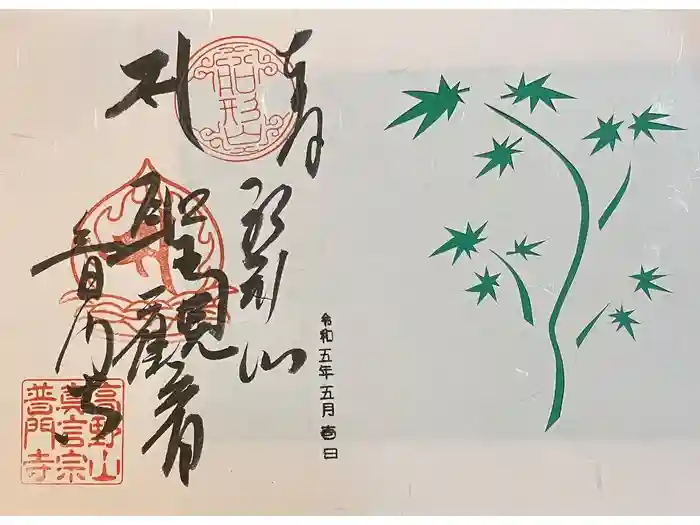 奉拝
船形山
札
聖観音
普門寺
船形山
令和五年五月吉日
高野山
真言宗
普門寺